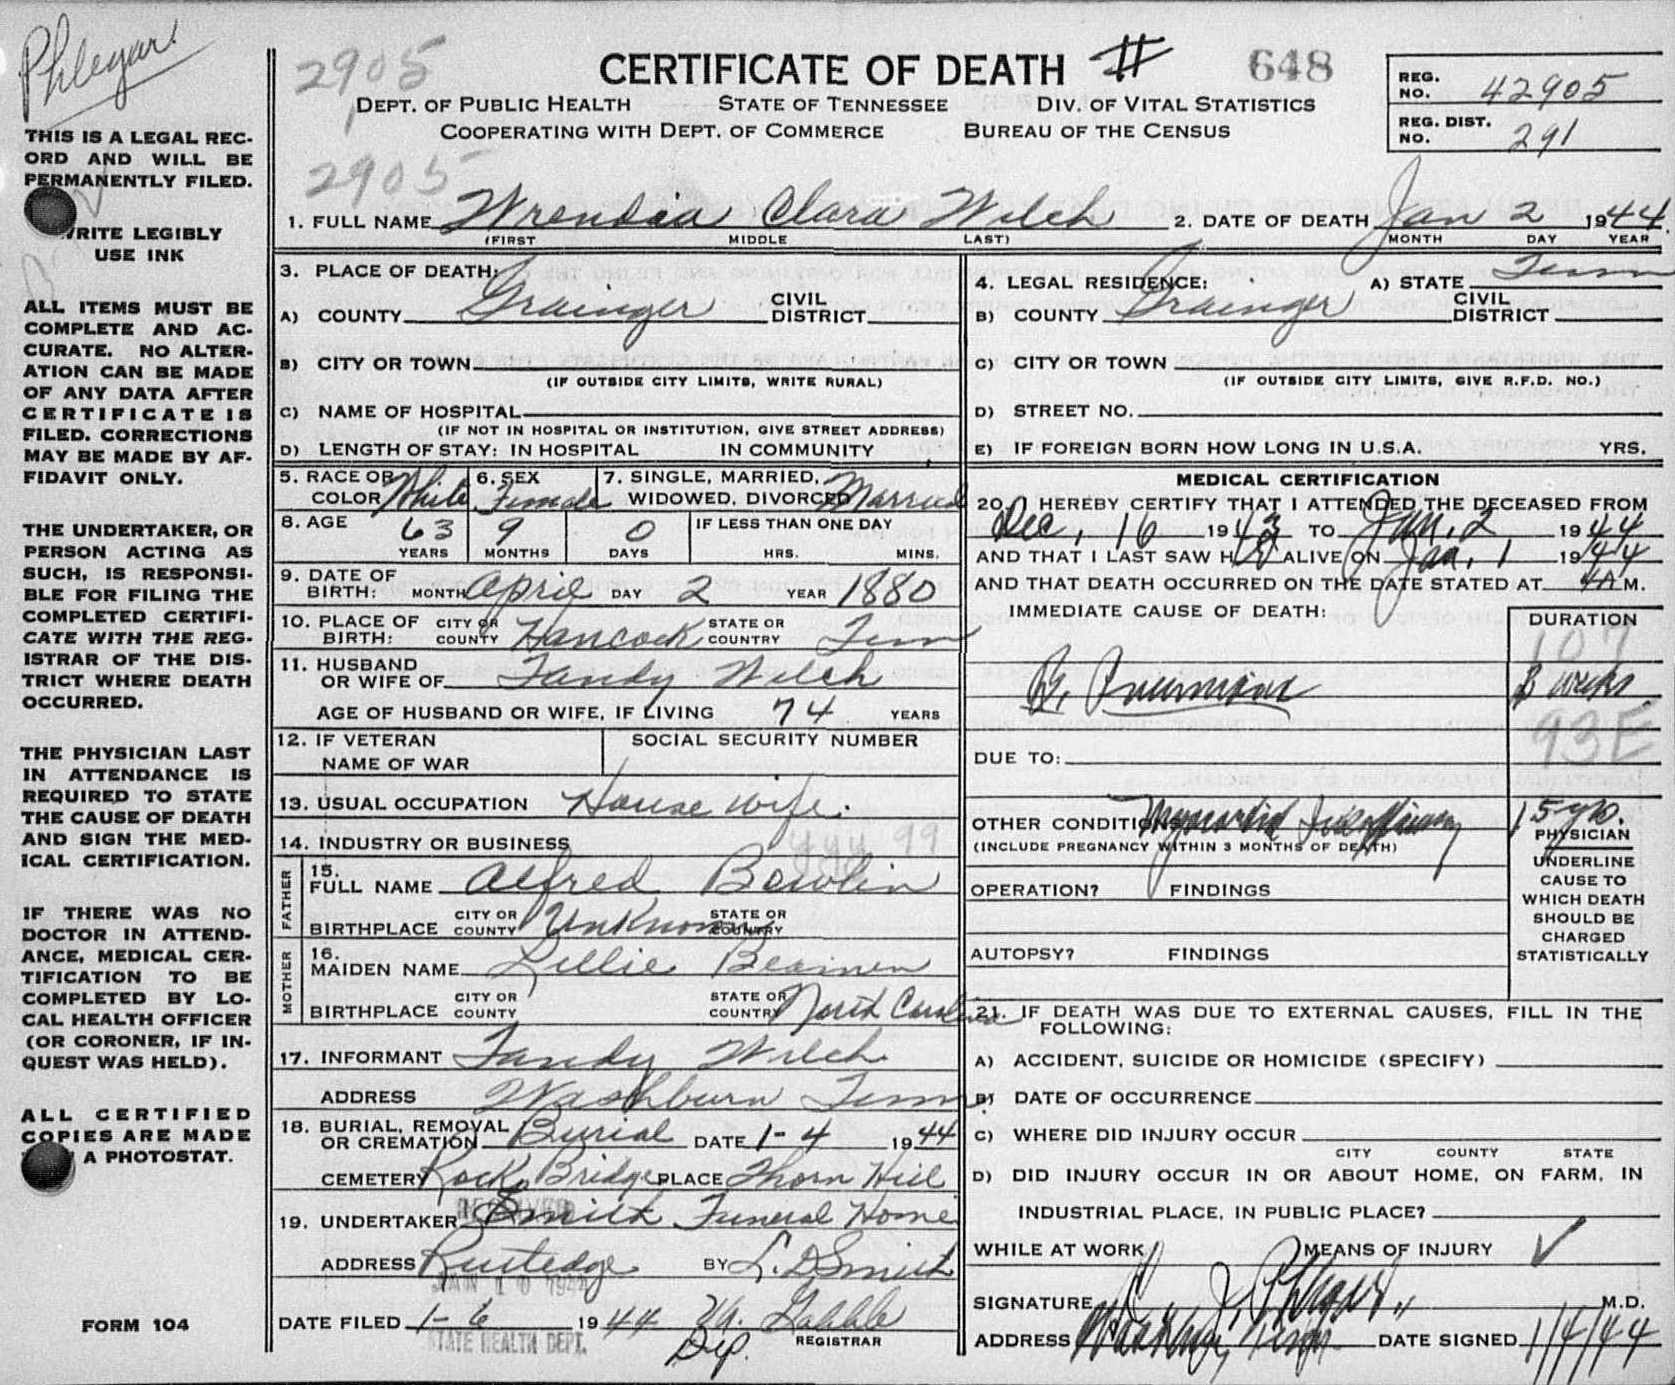 Phlegar
THIS IS A LEGAL REC-
ORD AND WILL BE
PERMANENTLY FILED.
WRITE LEGIBLY
USE INK
ALL ITEMS MUST BE
COMPLETE AND AC-
CURATE. NO ALTER-
ATION CAN BE MADE
OF ANY DATA AFTER
CERTIFICATE IS
FILED. CORRECTIONS
MAY BE MADE BY AF-
FIDAVIT ONLY.
THE UNDERTAKER, OR
PERSON ACTING AS
SUCH, IS RESPONSI-
BLE FOR FILING THE
COMPLETED CERTIFI-
CATE WITH THE REG-
ISTRAR OF THE DIS-
TRICT WHERE DEATH
OCCURRED.
THE PHYSICIAN LAST
IN ATTENDANCE IS
REQUIRED TO STATE
THE CAUSE OF DEATH
AND SIGN THE MED-
ICAL CERTIFICATION.
IF THERE WAS NO
DOCTOR IN ATTEND-
ANCE, MEDICAL CER-
TIFICATION TO BE
COMPLETED BY LO-
CAL HEALTH OFFICER
(OR CORONER, IF IN-
QUEST WAS HELD).
ALL CERTIFIED
COPIES ARE MADE
A PHOTOSTAT.
FORM 104
2905 CERTIFICATE OF DEATH # 648
REG. NO. 42905
DEPT. OF PUBLIC HEALTH STATE OF TENNESSEE DIV. OF VITAL STATISTICS
COOPERATING WITH DEPT. OF COMMERCE BUREAU OF THE CENSUS
REG. DIST. NO. 291
2905
1. FULL NAME Wrendia Clara Welch 2. DATE OF DEATH Jan 2 1944
(FIRST MIDDLE LAST) MONTH DAY YEAR
3. PLACE OF DEATH:
A) COUNTY Grainger CIVIL DISTRICT
B) CITY OR TOWN
(IF OUTSIDE CITY LIMITS, WRITE RURAL)
C) NAME OF HOSPITAL
(IF NOT IN HOSPITAL OR INSTITUTION, GIVE STREET ADDRESS)
D) LENGTH OF STAY: IN HOSPITAL IN COMMUNITY
4. LEGAL RESIDENCE: A) STATE Tenn
B) COUNTY Grainger CIVIL DISTRICT
C) CITY OR TOWN
(IF OUTSIDE CITY LIMITS, GIVE R.F.D. NO.)
D) STREET NO.
E) IF FOREIGN BORN HOW LONG IN U.S.A. YRS.
5. RACE OR COLOR White 6. SEX Female 7. SINGLE, MARRIED, WIDOWED, DIVORCED Married
8. AGE 63 9 0 IF LESS THAN ONE DAY
YEARS MONTHS DAYS HRS. MINS.
9. DATE OF BIRTH: MONTH April DAY 2 YEAR 1880
10. PLACE OF BIRTH: CITY OR COUNTY Hancock STATE OR COUNTRY Tenn
11. HUSBAND OR WIFE OF Tandy Welch
AGE OF HUSBAND OR WIFE, IF LIVING 74 YEARS
12. IF VETERAN NAME OF WAR SOCIAL SECURITY NUMBER
13. USUAL OCCUPATION House wife.
14. INDUSTRY OR BUSINESS
99
FATHER
15. FULL NAME Alfred Bowlin
BIRTHPLACE CITY OR COUNTY Unknown STATE OR COUNTRY
MOTHER
16. MAIDEN NAME Lillie
BIRTHPLACE CITY OR COUNTY STATE OR COUNTRY North Carolina
17. INFORMANT Tandy Welch
ADDRESS Washburn Tenn
18. BURIAL, REMOVAL OR CREMATION Burial DATE 1-4 1944
CEMETERY Rock Bridge PLACE Thorn Hill
RECEIVED
19. UNDERTAKER Smith Funeral Home
ADDRESS Rutledge BY L. D Smith
JAN 10 1944
DATE FILED 1-6 1944
STATE HEALTH DEPT.
Dep. REGISTRAR
MEDICAL CERTIFICATION
20. I HEREBY CERTIFY THAT I ATTENDED THE DECEASED FROM
Dec, 16 1943 TO Jan, 2 1944
AND THAT I LAST SAW H ALIVE ON Jan, 1 1944
AND THAT DEATH OCCURRED ON THE DATE STATED AT 4A M.
IMMEDIATE CAUSE OF DEATH: DURATION
107
B. Pneumonia 3 weeks
93E
DUE TO:
OTHER CONDITIONS Myocardial Insufficiency 15 yrs.
(INCLUDE PREGNANCY WITHIN 3 MONTHS OF DEATH)
OPERATION? FINDINGS
AUTOPSY? FINDINGS
PHYSICIAN
UNDERLINE
CAUSE TO
WHICH DEATH
SHOULD BE
CHARGED
STATISTICALLY
21. IF DEATH WAS DUE TO EXTERNAL CAUSES, FILL IN THE
FOLLOWING:
A) ACCIDENT, SUICIDE OR HOMICIDE (SPECIFY)
B) DATE OF OCCURRENCE
C) WHERE DID INJURY OCCUR
CITY COUNTY STATE
D) DID INJURY OCCUR IN OR ABOUT HOME, ON FARM, IN
INDUSTRIAL PLACE, IN PUBLIC PLACE?
WHILE AT WORK MEANS OF INJURY
SIGNATURE Phlegar M.D.
ADDRESS DATE SIGNED 1/4/44